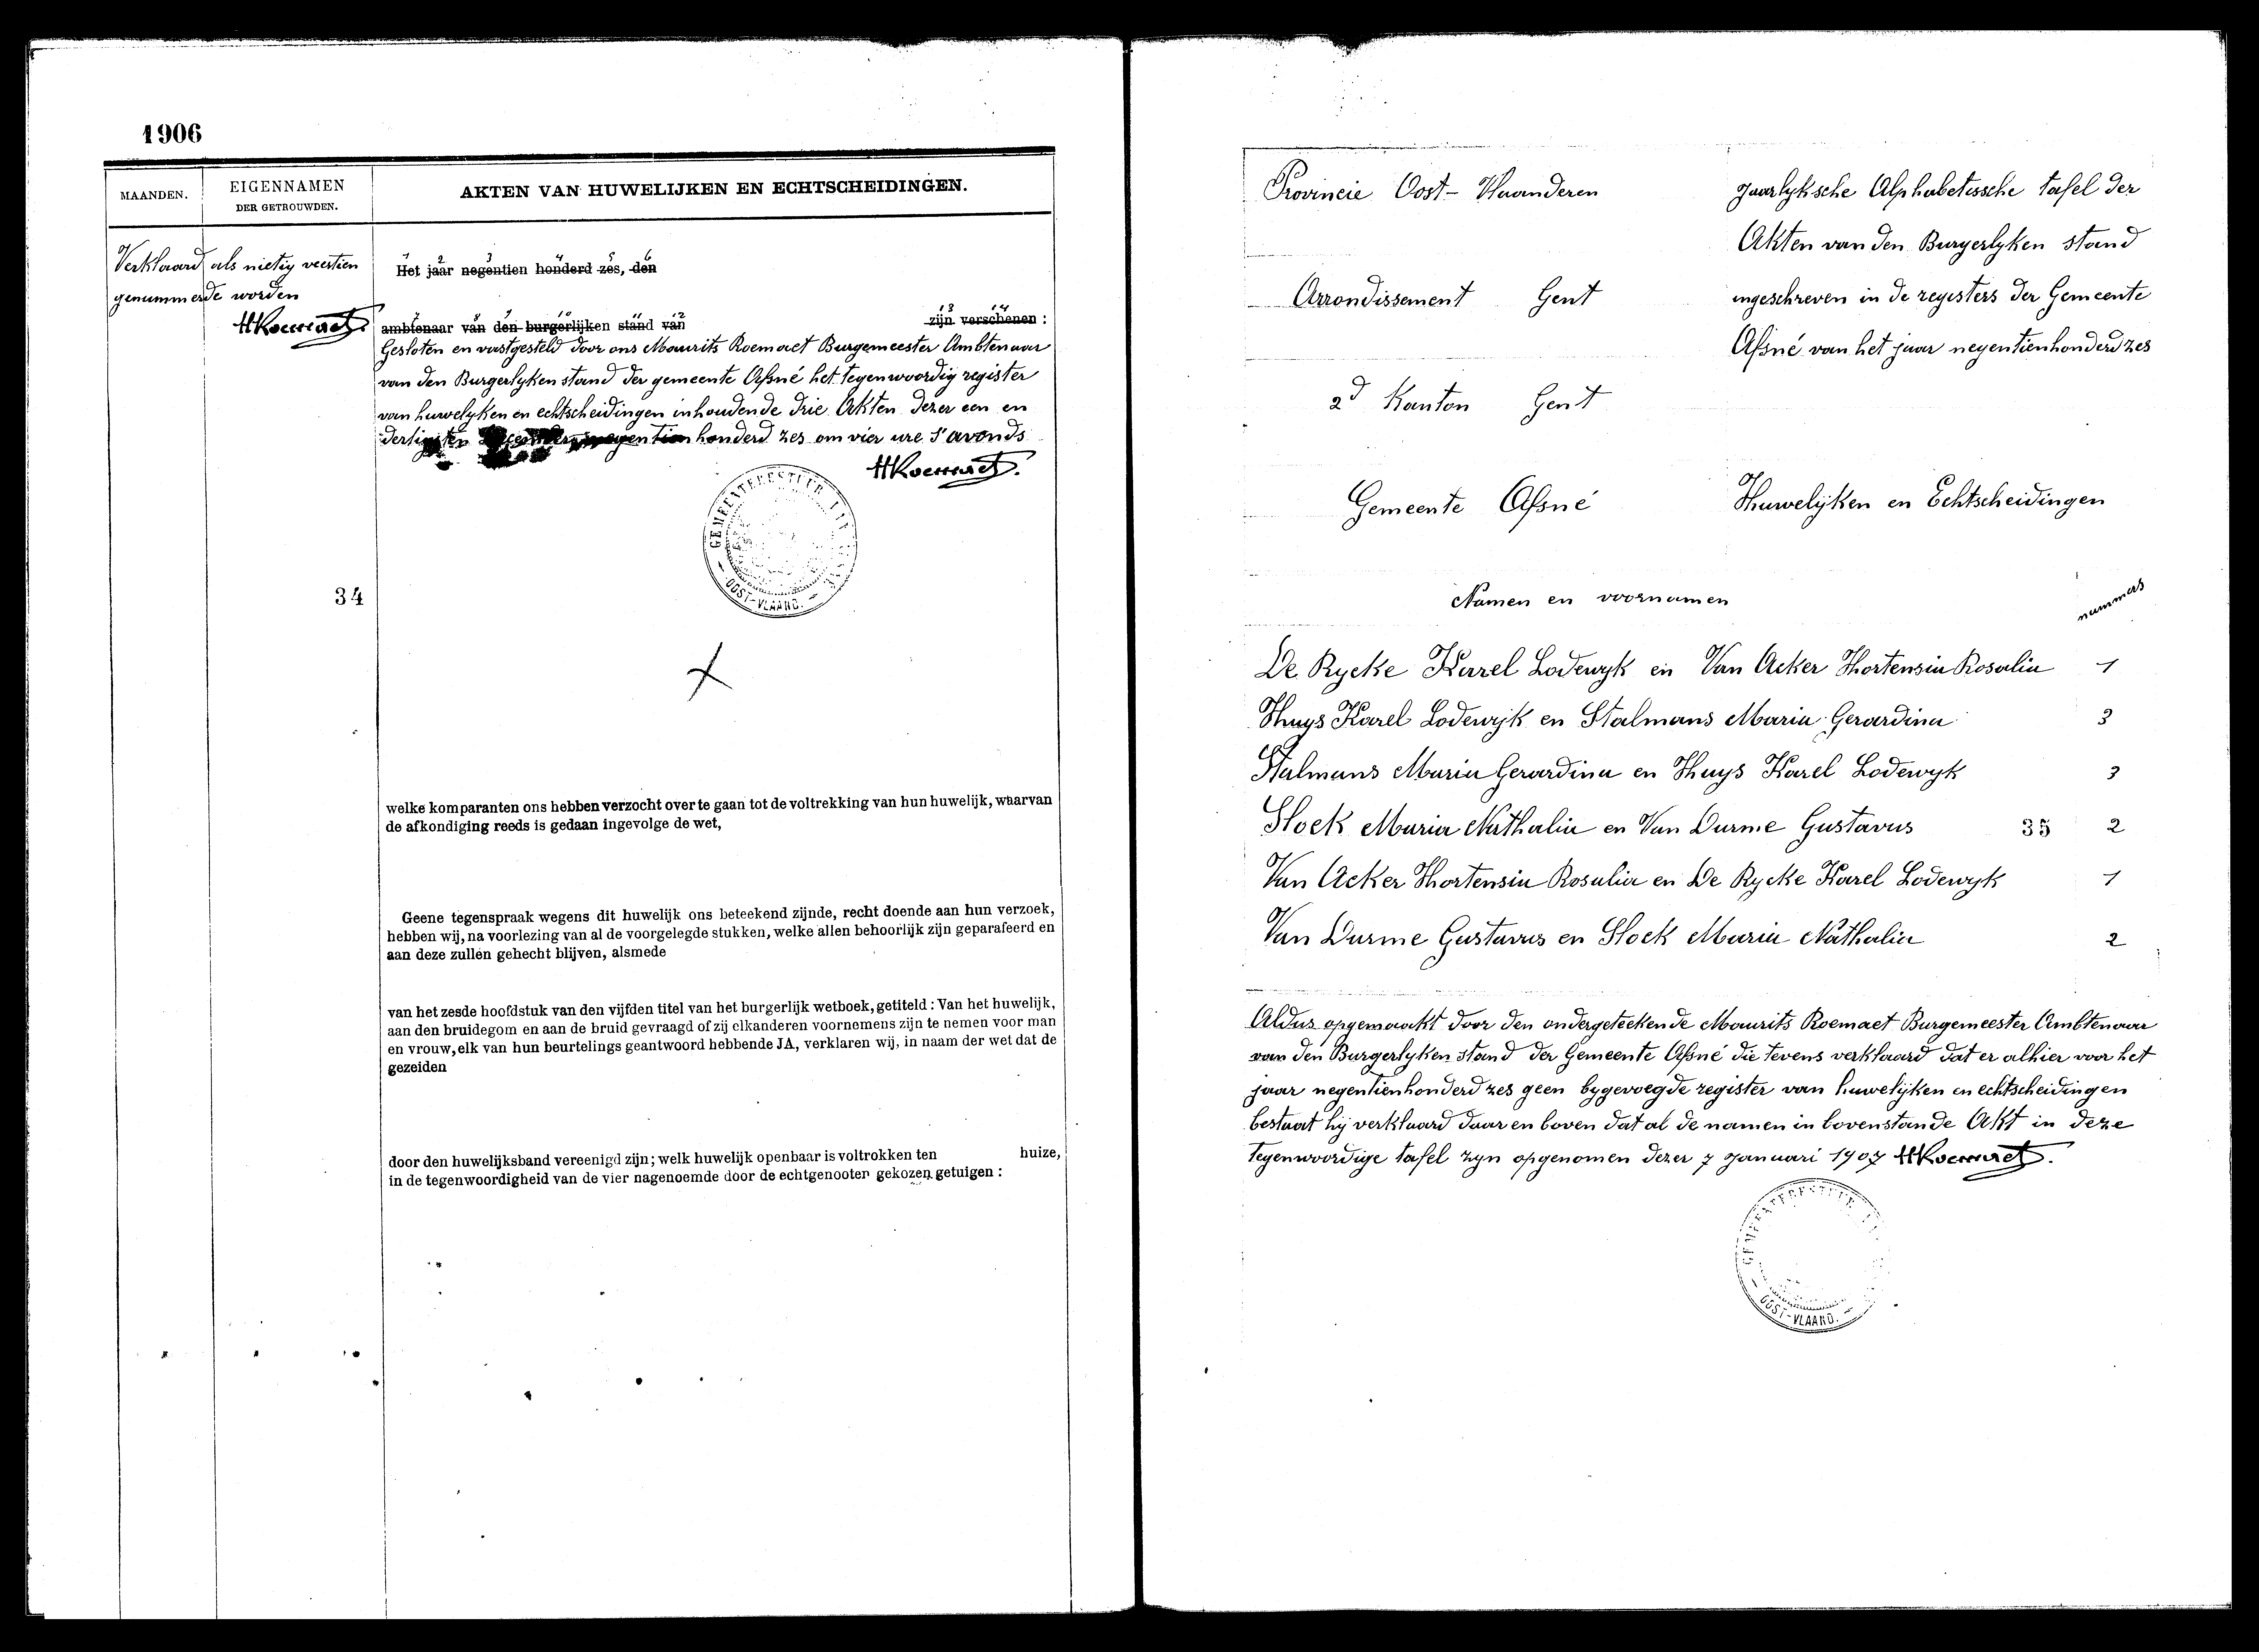 1906
MAANDEN.
EIGENNAMEN
DER GETROUWDEN.
AKTEN VAN HUWELIJKEN EN ECHTSCHEIDINGEN.
Verklaard als nietig veertien
genummerde worden
MRoemaet
1 2 3 4 5 6
Het jaar negentien honderd zes, den
ambtenaar van den burgerlijken stand van
13 14
zijn verschenen :
Gesloten en vastgesteld door ons Maurits Roemaet Burgemeester Ambtenaar
van den Burgerlyken stand der gemeente Afsné het tegenwoordig register
van huwelyken en echtscheidingen inhoudende drie Akten dezer een en
dertigsten December negentien honderd zes om vier ure s'avonds
MRoemaet.
OOST-VLAAND.
34
welke komparanten ons hebben verzocht over te gaan tot de voltrekking van hun huwelijk, waarvan
de afkondiging reeds is gedaan ingevolge de wet,
Geene tegenspraak wegens dit huwelijk ons beteekend zijnde, recht doende aan hun verzoek,
hebben wij, na voorlezing van al de voorgelegde stukken, welke allen behoorlijk zijn geparafeerd en
aan deze zullen gehecht blijven, alsmede
van het zesde hoofdstuk van den vijfden titel van het burgerlijk wetboek, getiteld : Van het huwelijk,
aan den bruidegom en aan de bruid gevraagd of zij elkanderen voornemens zijn te nemen voor man
en vrouw, elk van hun beurtelings geantwoord hebbende JA, verklaren wij, in naam der wet dat de
gezeiden
door den huwelijksband vereenigd zijn; welk huwelijk openbaar is voltrokken ten huize,
in de tegenwoordigheid van de vier nagenoemde door de echtgenooten gekozen getuigen :
Provincie Oost-Vlaanderen
Jaarlyksche Alphabetissche tafel der
Akten van den Burgerlyken stand
Arrondissement Gent
ingeschreven in de registers der Gemeente
Afsné van het jaar negentienhonderd zes
2d Kanton Gent
Gemeente Afsné
Huwelijken en Echtscheidingen
Namen en voornamen
nummers
De Rycke Karel Lodewyk en Van Acker Hortensia Rosalia 1
Huys Karel Lodewijk en Stalmans Maria Gerardina 3
Stalmans Maria Gerardina en Huys Karel Lodewyk 3
Stock Maria Nathalia en Van Durme Gustavus 35 2
Van Acker Hortensia Rosalia en De Rycke Karel Lodewyk 1
Van Durme Gustavus en Stock Maria Nathalia 2
Aldus opgemaakt door den ondergeteekende Maurits Roemaet Burgemeester Ambtenaar
van den Burgerlyken stand der Gemeente Afsné die tevens verklaard dat er alhier voor het
jaar negentienhonderd zes geen bygevoegde register van huwelijken en echtscheidingen
bestaat hij verklaard daar en boven dat al de namen in bovenstande Akt in deze
tegenwoordige tafel zyn opgenomen dezer 7 Januari 1907 MRoemaet.
OOST-VLAAND.